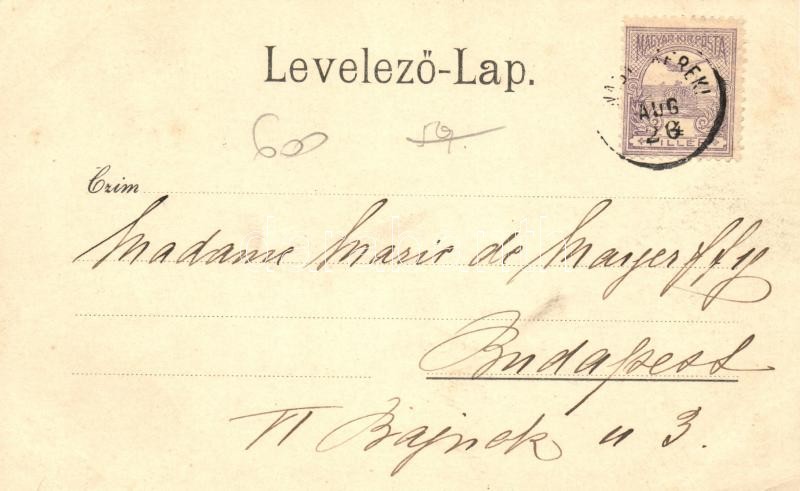 Levelező-Lap.
MAGYAR KIR. POSTA
AUG
26
FILLÉR
60
59.
Czim
Madame Marie de Mayerffy
Budapest
VI Bajnok u 3.